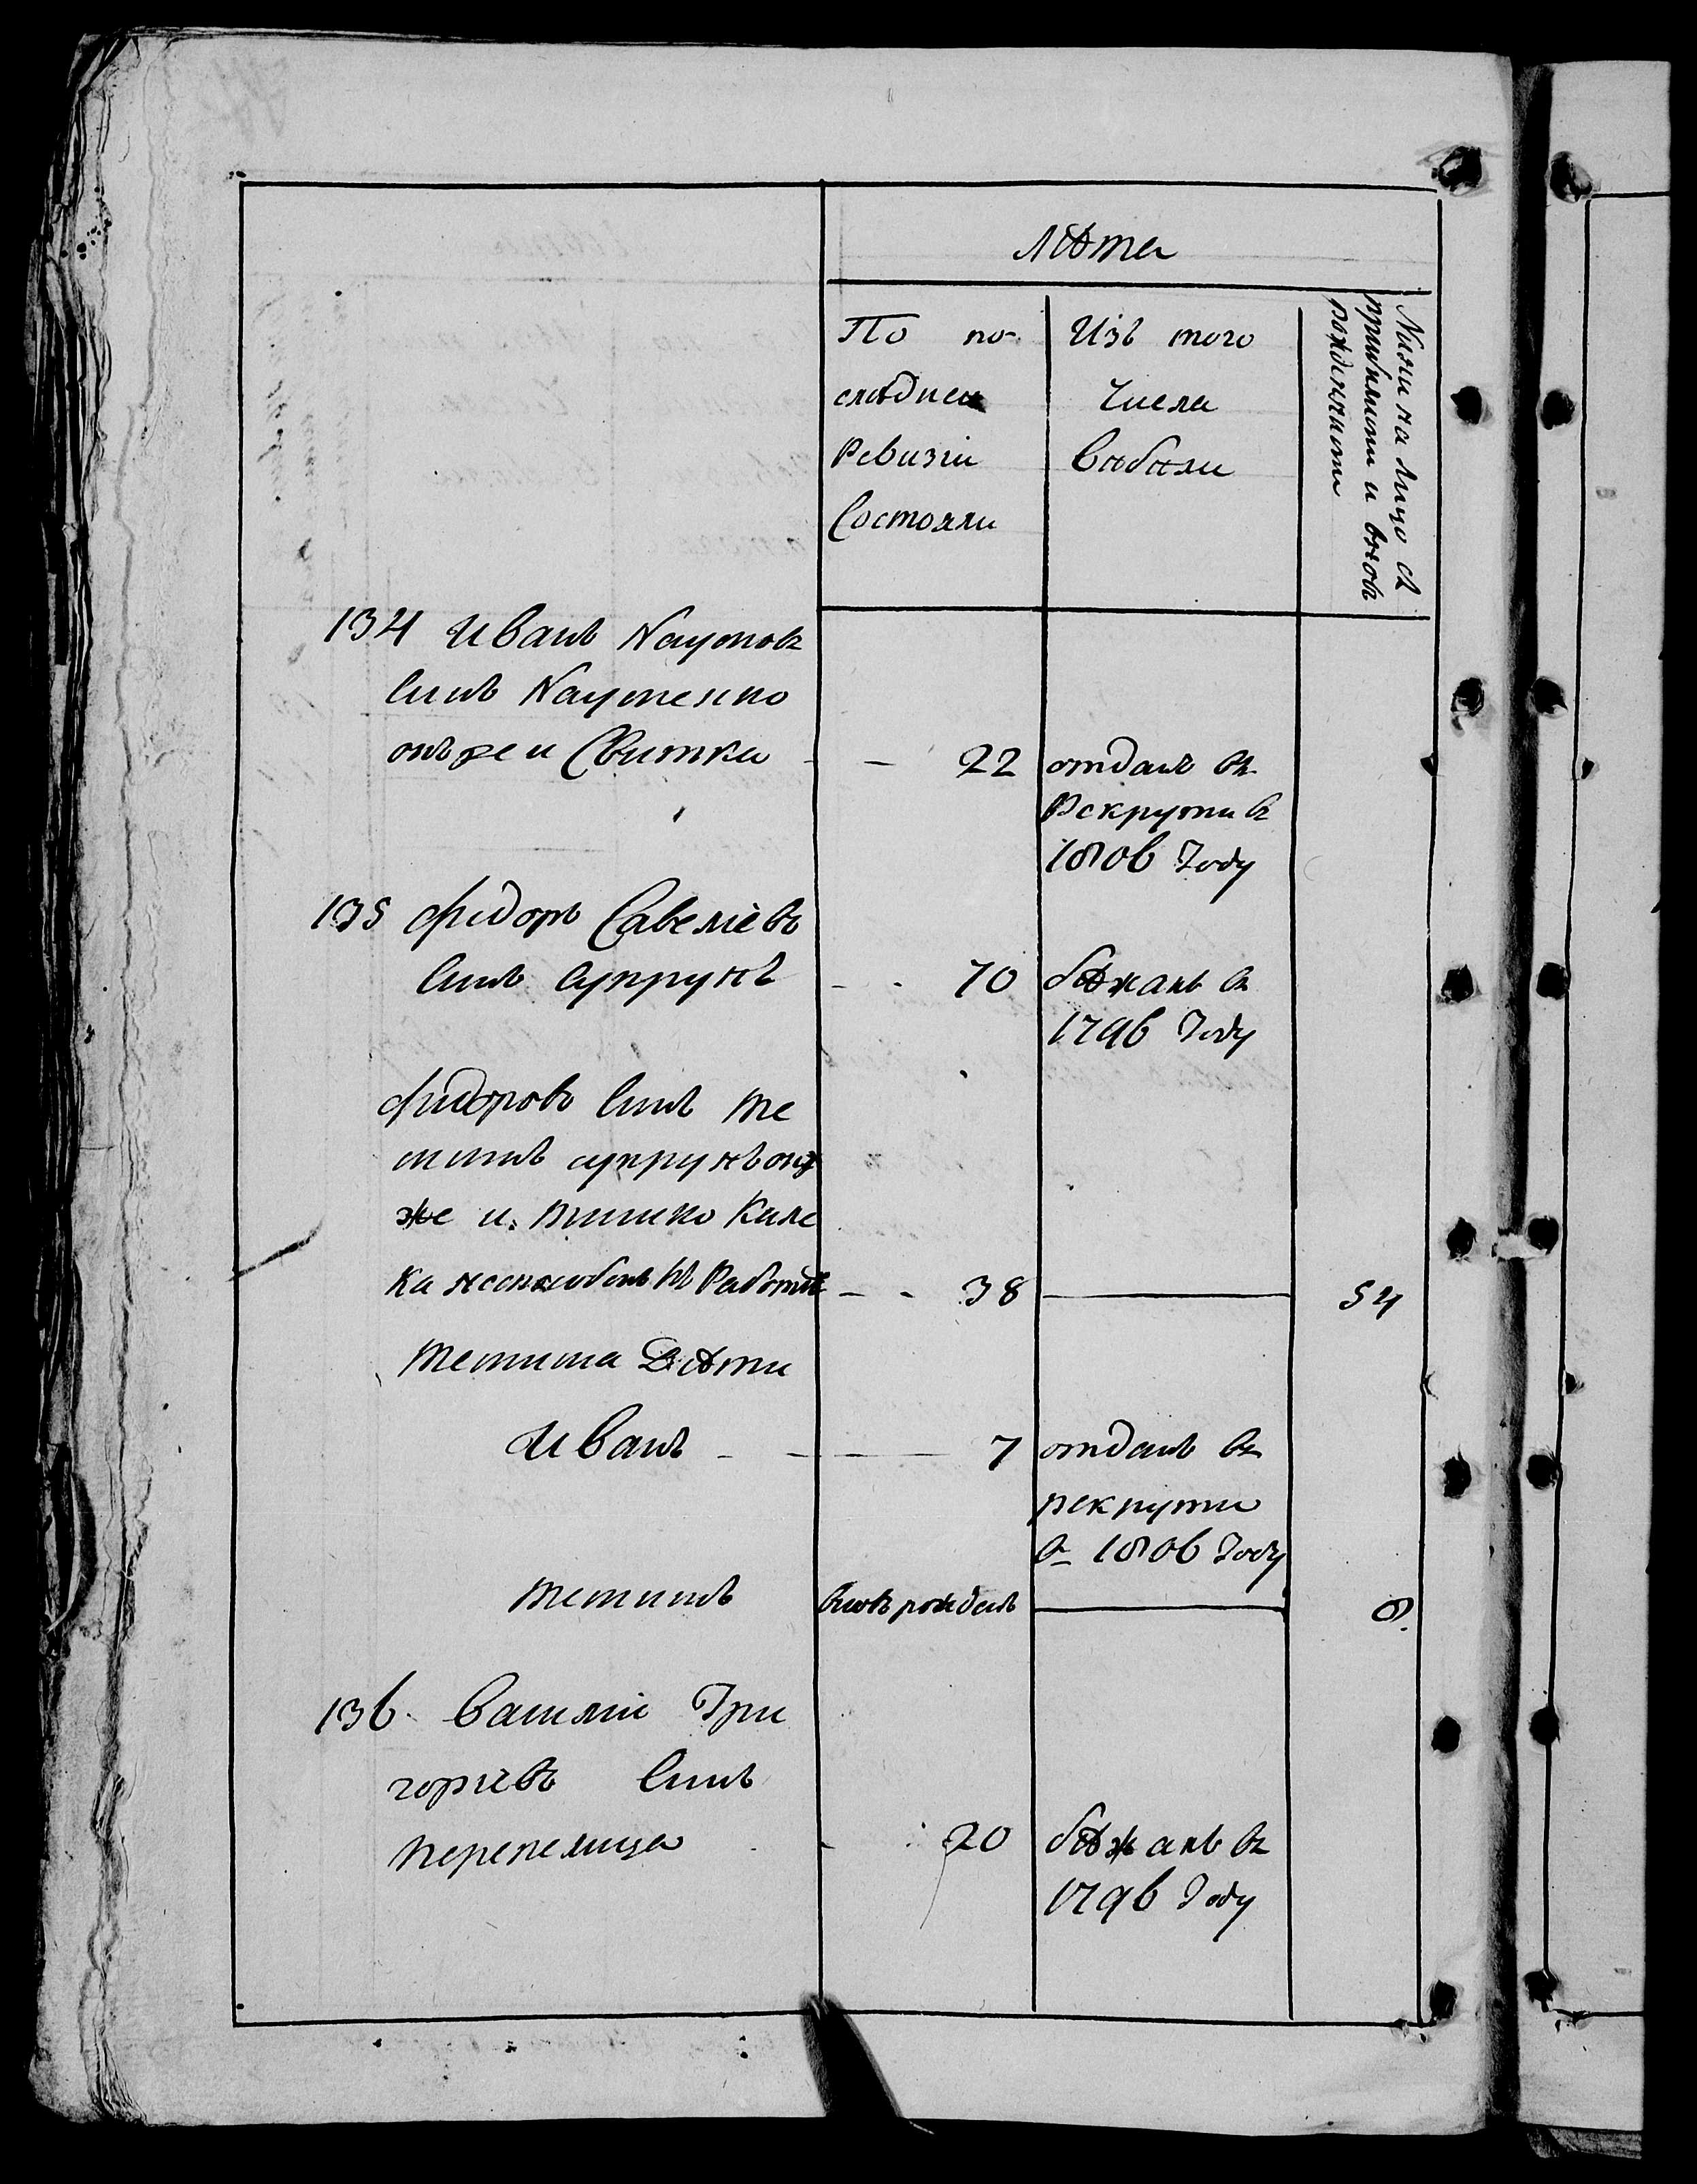 лѣта
По по-
слѣдней
Ревизіи
Состояли
Изъ того
числа
выбыли
Ныне на лицо съ
прибылыми и вновь
рожденными
134 Иванъ Науѣмовъ
Сынъ Науменко
онъ же и Свитка - 22 отданъ въ
Рекруты въ
1806 Году
135 Фидоръ Савеліевъ
Сынъ Супрунъ - 70 бѣжалъ въ
1796 Году
Фидоровъ Сынъ
супрунъ онъ
же и
ка неспособенъ къ Работѣ - - 38 54
Дѣти
Иванъ - 7 отданъ въ
рекруты
в 1806 Году
вновь рожденъ 8.
136. Василій Гри
горіевъ Сынъ
перепелица - 20 бѣжалъ въ
1796 Году